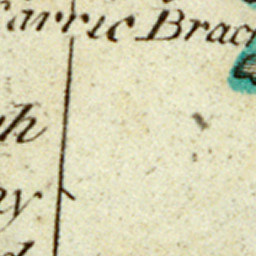 arric Brac
gh
ey
d